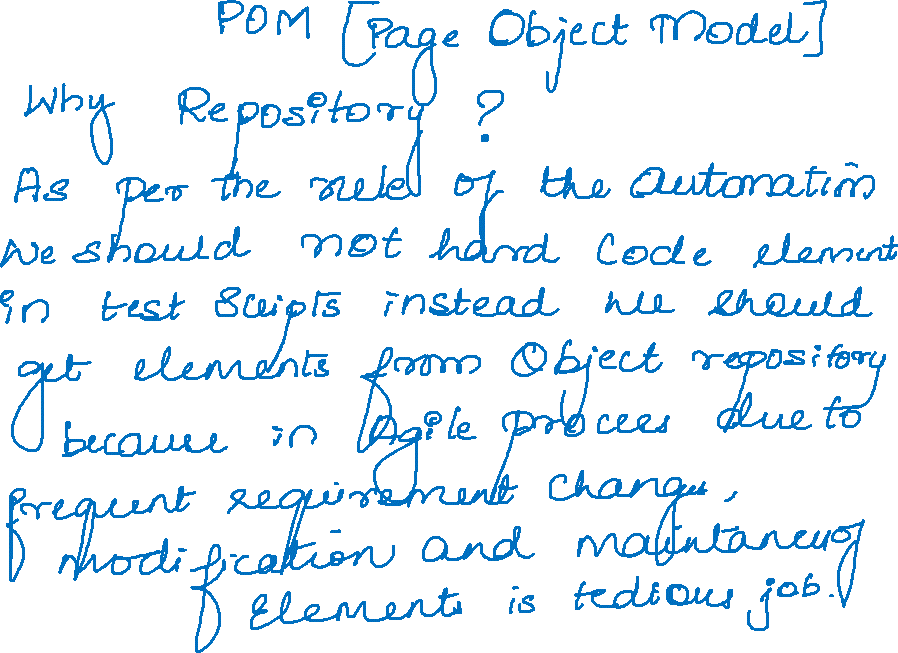 POM [Page Object Model]
Why Repository ?
As per the rule of the automation
We should not hard code element
in test Scripts instead we should
get elements from Object repository
because in Agile process due to
frequent requirement changes,
modification and maintance of
Elements is tedious job.